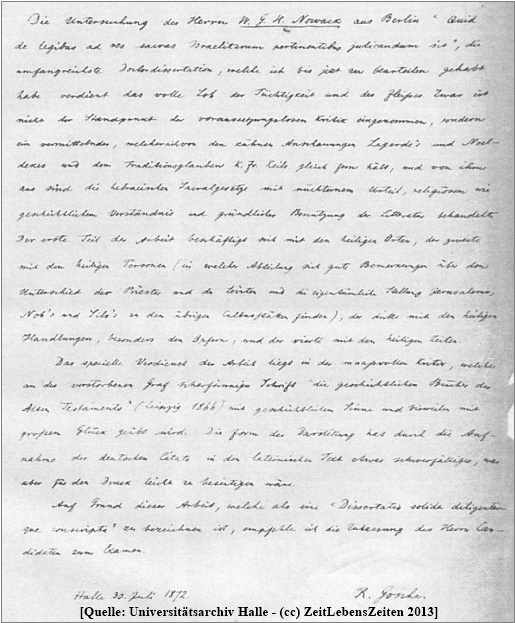 Die Untersuchung des Herrn W. G. H. Nowack aus Berlin "Quid
de legibus ad res sacras Israelitarum pertinentibus judicandum sit", die
umfangreichste Doctordissertation, welche ich bis jetzt zu beurteilen gehabt
habe verdient das volle Lob der Tüchtigkeit und des Fleißes. Zwar ist
nicht der Standpunct der voraussetzungslosen Kritik eingenommen, sondern
ein vermittelnder, welcher sich von den kühnen Anschauungen Lagarde's und Noel-
dekes und dem Traditionsglauben K. Fr. Keils gleich fern hält, und von ihm
aus sind die hebraeischen Sacralgesetze mit nüchternem Urteil, religiösem wie
geschichtlichem Verständnis und gründlicher Benutzung der Litteratur behandelt.
Der erste Teil der Arbeit beschäftigt sich mit den heiligen Orten, der zweite
mit den heiligen Personen (in welcher Abteilung sich gute Bemerkungen über den
Unterschied der Priester und der Leviten und die eigentümliche Stellung Jerusalems,
Nob's und Silo's zu den übrigen Cultusstätten finden), der dritte mit den heiligen
Handlungen, besonders den Opfern, und der vierte mit den heiligen Zeiten.
Das specielle Verdienst der Arbeit liegt in der maßvollen Kritik, welche
an des verstorbenen Graf scharfsinniger Schrift "die geschichtlichen Bücher des
Alten Testaments" (Leipzig 1866) mit geschichtlichem Sinne und bisweilen mit
großem Glück geübt wird. Die Form der Darstellung hat durch die Auf-
nahme der deutschen Citate in den lateinischen Text etwas schwerfälliges, was
aber für den Druck leicht zu beseitigen wäre.
Auf Grund dieser Arbeit, welche als eine "Dissertatio solida diligenter
que conscripta" zu bezeichnen ist, empfehle ich die Zulassung des Herrn Can-
didaten zum Examen.
Halle 30. Juli 1872. R. Gosche.
[Quelle: Universitätsarchiv Halle - (cc) ZeitLebensZeiten 2013]